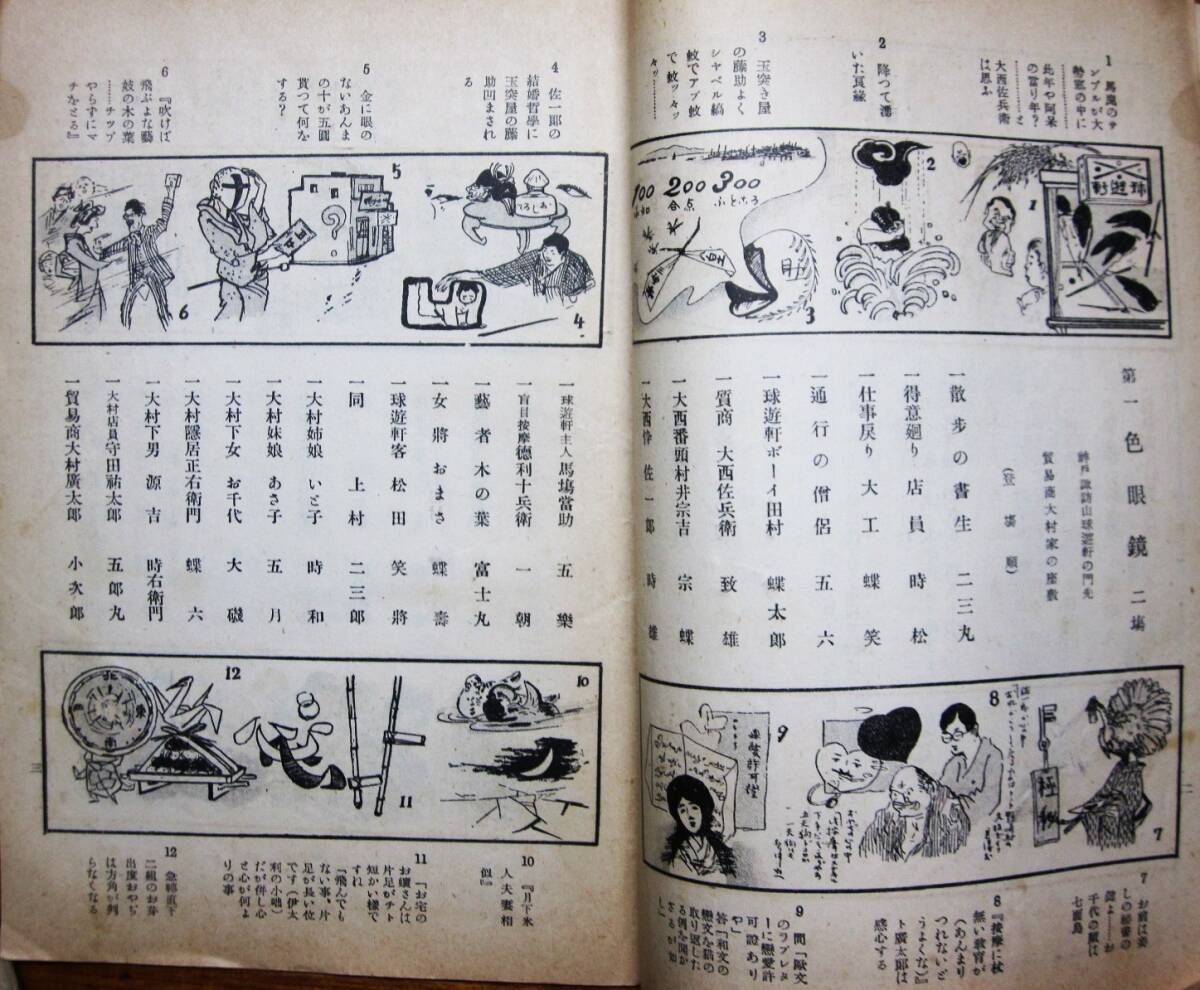 1 馬鹿のサ
ンプルが大
勢窓の中に
此年や阿呆
の當り年?
…………と
大西佐兵衛
は思ふ
2 降つて湧
いた良縁
3 玉突き屋
の藤助よく
シヤベル縞
蚊でアブ蚊
で蚊ッ々ッ
々ッ…………
4 佐一郎の
結婚哲學に
玉突屋の藤
助凹まされ
る
5 金に眼の
ないあんま
の十が五圓
貰つて何を
する?
6 『吹けば
飛ぶよな藝
妓の木の葉
……チツプ
やらずにマ
チをとる』
球遊軒
1
2
300 ふところ
200 合点
100
助
3
おしろい
4
5
?
6
第一色眼鏡二場
神戸諏訪山球遊軒の門先
貿易商大村家の座敷
(登場順)
一散歩の書生 二三丸
一得意廻り店員 時松
一仕事戻り大工 蝶笑
一通行の僧侶 五六
一球遊軒ボーイ田村 蝶太郎
一質商 大西佐兵衛 致雄
一大西番頭村井宗吉 宗蝶
一大西忰佐一郎 時雄
一球遊軒主人 馬塲當助 五樂
一盲目按摩德利十兵衛 一朝
一藝者木の葉 富士丸
一女將おまさ 蝶壽
一球遊軒客松田 笑將
一同 上村 二三郎
一大村姉娘 いと子 時和
一大村妹娘 あさ子 五月
一大村下女 お千代 大磯
一大村隱居正右衛門 蝶六
一大村下男 源吉 時右衛門
一大村店員守田祐太郎 五郎丸
一貿易商大村廣太郎 小次郎
7
極秘
8
9
戀愛許可證
10
11
12
北
東
南
7 お前は妾
しの秘書の
鍵よ……お
千代の戴は
七面鳥
8 『按摩に杖
無い敎育が
(あんまり
つれないど
うよくな)』
ト廣太郎は
惑心する
9 問「歐文
のラブレタ
ーに戀愛許
可證ありや」
答「和文の
戀文を猫の
取り返した
る例を聞か
ざるが如
し」
10 『月下氷
人夫妻相
似』
11 「お宅の
お孃さんは
片足がチト
短かい樣で
すれ
「飛んでも
ない事、片
足が長い位
です(伊太
利の小咄)
だが併し心
と心が何よ
りの事
12 急轉直下
二組のお芽
出度おやぢ
は方角が判
らなくなる